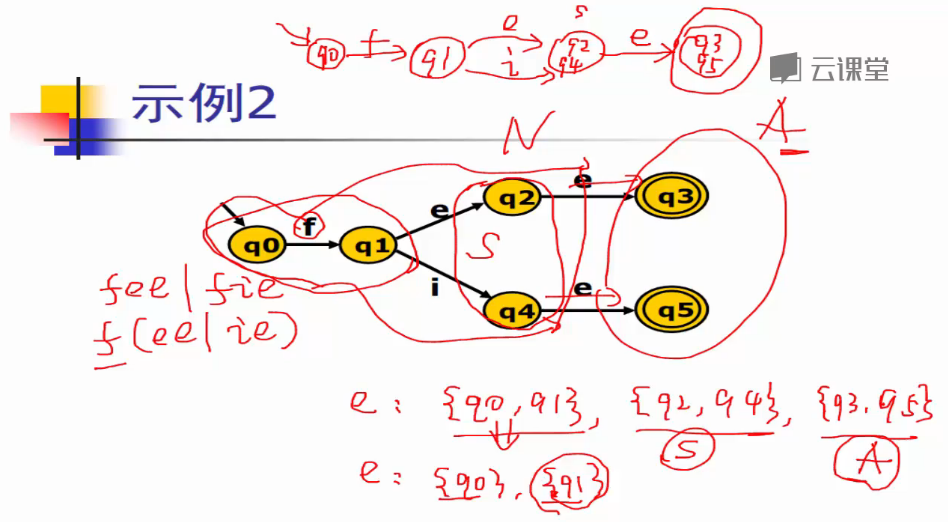 q0 f q1 e i s q2 q4 e q3 q5
云课堂
示例2
N
A
q0 f q1 e q2 e q3
S
i q4 e q5
fee|fie
f(ee|ie)
e: {q0, q1}, {q2, q4}, {q3, q5}
S A
e: {q0}, {q1}